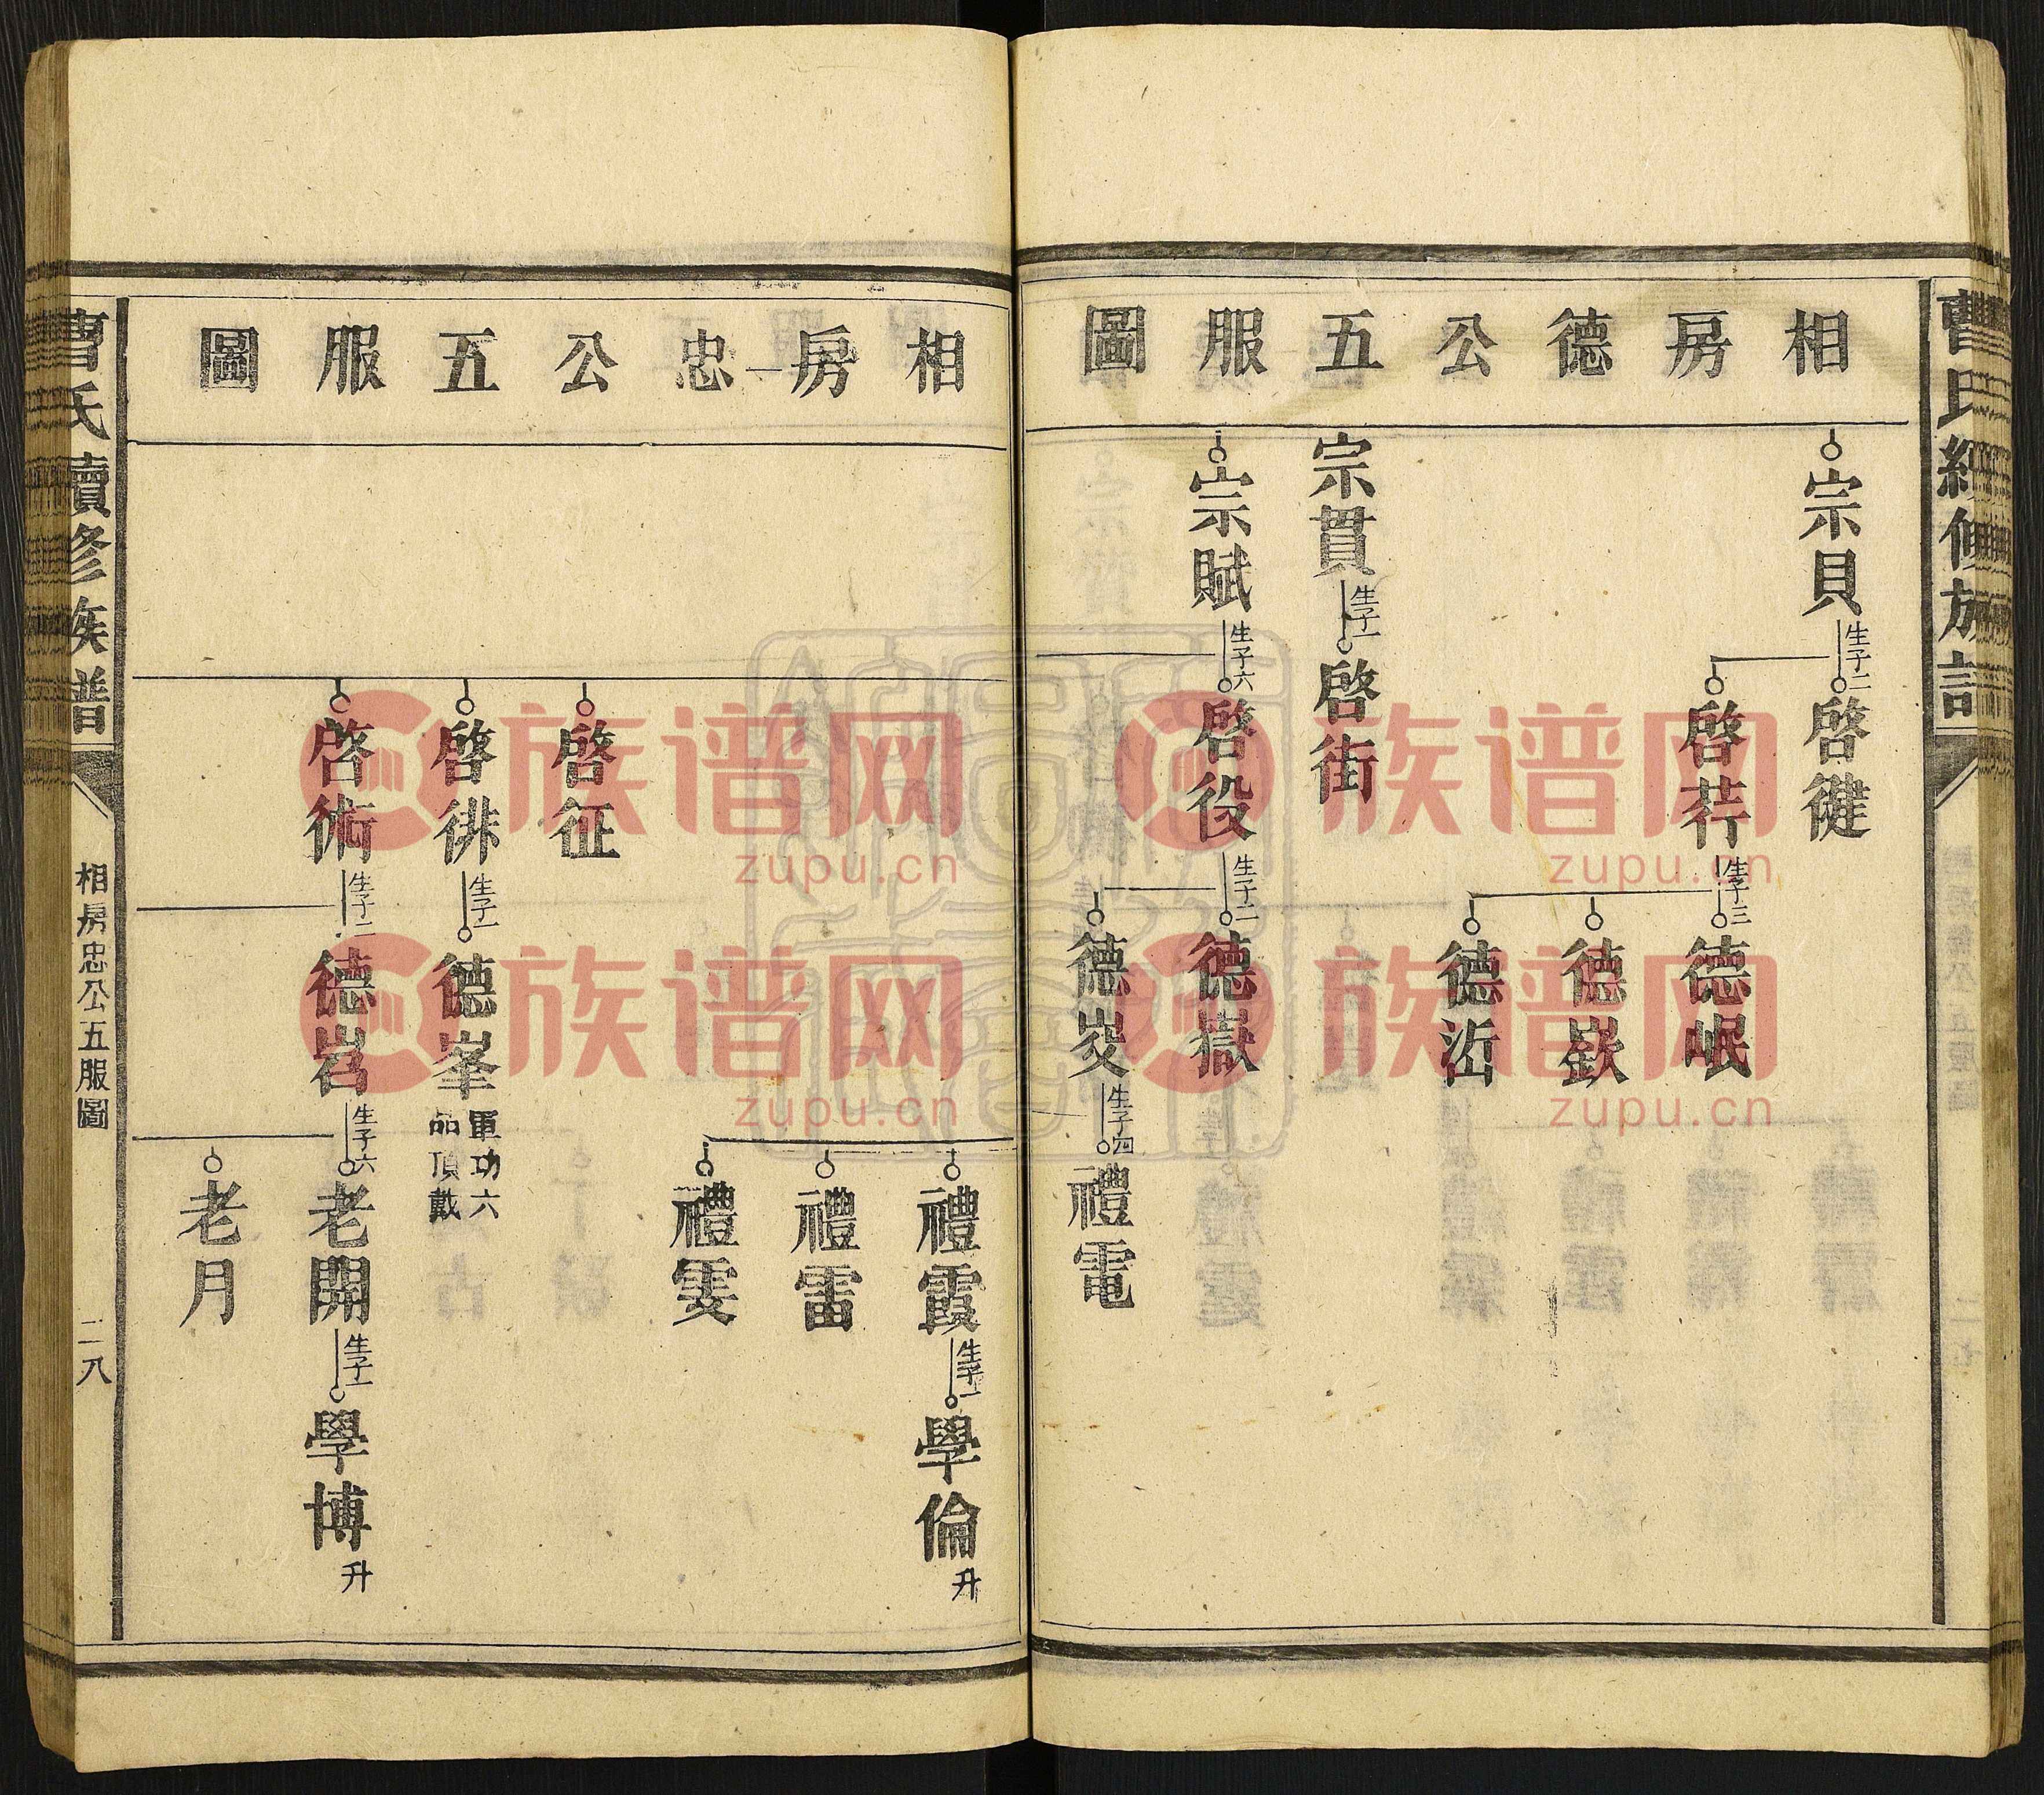 相房德公五服圖
宗貝
生子二
啓徤
啓荇
生子三
德岷
德嶔
宗貫
生子一
啓街
宗賦
生子六
啓役
生子二
德嶽
德㟁
生子四
禮電
相房忠公五服圖
禮霞
生子一
學倫
升
禮雷
禮雯
啓征
啓徘
生子一
德峯
軍功六
品頂戴
啓術
生子二
德岧
生子六
老開
生子一
學博
升
老月
曹氏續修族譜
相房忠公五服圖
二八
族谱网
zupu.cn
族谱网
zupu.cn
族谱网
zupu.cn
族谱网
zupu.cn